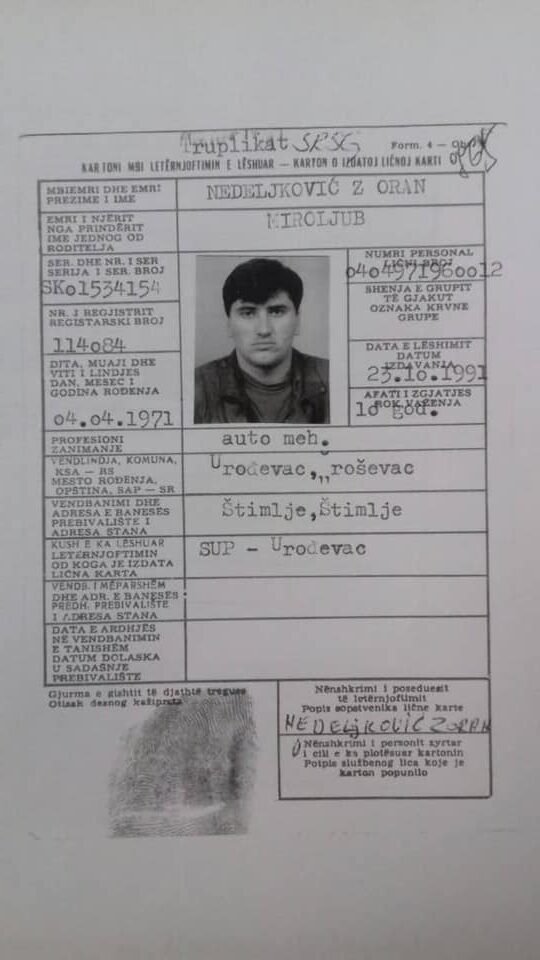 Truplikat SRSG Form. 4 —
KARTONI MBI LETËRNJOFTIMIN E LËSHUAR — KARTON O IZDATOJ LIČNOJ KARTI
MBIEMRI DHE EMRI
PREZIME I IME
NEDELJKOVIĆ Z ORAN
EMRI I NJËRIT
NGA PRINDËRIT
IME JEDNOG OD
RODITELJA
MIROLJUB
SER. DHE NR. I SER
SERIJA I SER. BROJ
SKo1534154
NR. I REGJISTRIT
REGISTARSKI BROJ
114o84
DITA, MUAJI DHE
VITI I LINDJES
DAN, MESEC I
GODINA ROĐENJA
o4.o4.1971
NUMRI PERSONAL
LIČNI BROJ
o4o4971960012
SHENJA E GRUPIT
TË GJAKUT
OZNAKA KRVNE
GRUPE
DATA E LËSHIMIT
DATUM
IZDAVANJA
23.1o.1991
AFATI I ZGJATJES
ROK VAŽENJA
1o god.
PROFESIONI
ZANIMANJE
auto meh.
VENDLINDJA, KOMUNA,
KSA — RS
MESTO ROĐENJA,
OPŠTINA, SAP — SR
Uroševac,
VENDBANIMI DHE
ADRESA E BANESËS
PREBIVALIŠTE I
ADRESA STANA
Štimlje,Štimlje
KUSH E KA LËSHUAR
LETËRNJOFTIMIN
OD KOGA JE IZDATA
LIČNA KARTA
SUP - Uroševac
VENDB. I MËPARSHËM
DHE ADR. E BANESËS
PREDH. PREBIVALIŠTE
I ADRESA STANA
DATA E ARDHJES
NË VENDBANIMIN
E TANISHËM
DATUM DOLASKA
U SADAŠNJE
PREBIVALIŠTE
Gjurma e gishtit të djathtë tregues
Otisak desnog kažiprsta
Nënshkrimi i poseduesit
të letërnjoftimit
Popis sopstvenika lične karte
NEDELJKOVIĆ ZORAN
Nënshkrimi i personit zyrtar
i cili e ka plotësuar kartonin
Potpis službenog lica koje je
karton popunilo